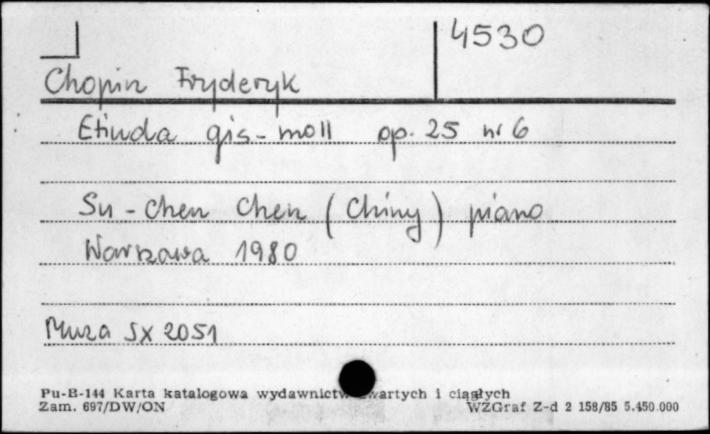 4530
Chopin Fryderyk
Etiuda gis-moll op. 25 nr 6
Su-Chen Chen (Chiny) piano
Warszawa 1980
Muza SX 2051
Pu-B-144 Karta katalogowa wydawnictw zwartych i ciągłych
Zam. 697/DW/ON WZGraf Z-d 2 158/85 5.450.000